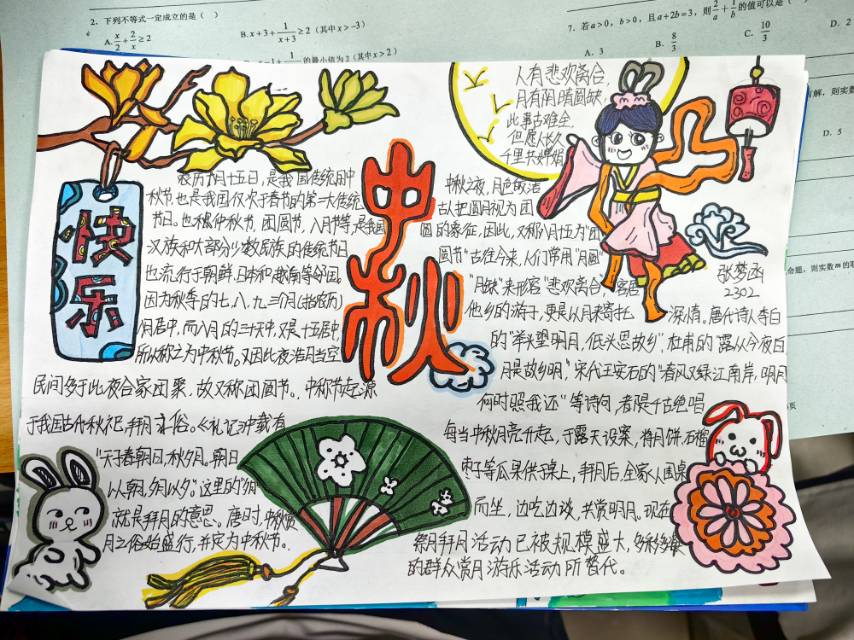 2. 下列不等式一定成立的是（ ）
A. x/2 + 2/x ≥ 2
B. x+3+ 1/(x+3) ≥ 2（其中x>-3）
的最小值为2（其中x>2）
7. 若a>0，b>0，且a+2b=3，则 2/a + 1/b 的值可以是（ ）
A. 3
B. 8/3
C. 10/3
D. 2
D. 5
人有悲欢离合，
月有阴晴圆缺，
此事古难全，
但愿人长久
千里共婵娟
快乐
中秋
农历八月十五日，是我国传统的中
秋节，也是我国仅次于春节的第一大传统
节日。也称仲秋节、团圆节、八月节等，是我国
汉族和大部分少数民族的传统节日
也流行于朝鲜、日本和越南等邻国。
因为秋季的七、八、九三个月（指农历）
八月居中，而八月的三十天中，又是十五居中，
所以称之为中秋节。又因此夜浩月当空
民间多于此夜合家团聚，故又称团圆节。中秋节起源
于我国古代秋祀、拜月之俗。《礼记》中载有
“天子春朝日，秋夕月。朝日
以朝，夕月以夕。”这里的“夕月”
就是拜月的意思。唐时，中秋赏
月之俗始盛行，并定为中秋节。
中秋之夜，月色皎洁
古人把圆月视为团
圆的象征，因此，又称八月十五为“团
圆节”古往今来，人们常用“月圆”
“月缺”来形容“悲欢离合”，客居
他乡的游子，更是以月来寄托
深情。唐代诗人李白
的“举头望明月，低头思故乡”，杜甫的“露从今夜白
月是故乡明，”宋代王安石的“春风又绿江南岸，明月
何时照我还”等诗句，都是千古绝唱
每当中秋月亮升起，于露天设案，将月饼，石榴
枣子等瓜果供于桌上，拜月后，全家人围桌
而坐，边吃边谈，共赏明月。现在
祭月拜月活动已被规模盛大、多彩多姿
的群众赏月游乐活动所替代。
张梦函
2302